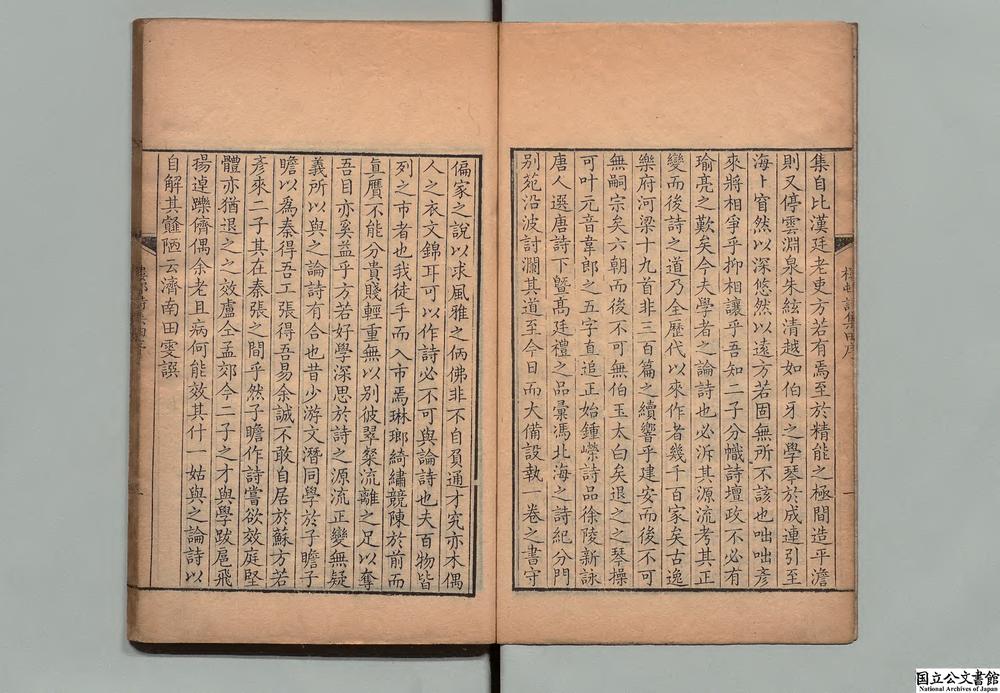 集自比漢廷老吏方若有焉至於精能之極間造平澹
則又停雲淵泉朱絃清越如伯牙之學琴於成連引至
海上窅然以深悠然以遠方若固無所不該也咄咄彦
來將相爭乎抑相讓乎吾知二子分幟詩壇政不必有
瑜亮之歎矣今夫學者之論詩也必泝其源流考其正
變而後詩之道乃全歷代以來作者幾千百家矣古逸
樂府河梁十九首非三百篇之續響乎建安而後不可
無嗣宗矣六朝而後不可無伯玉太白矣退之之琴操
可叶元音韋郎之五字直追正始鍾嶸詩品徐陵新詠
唐人選唐詩下曁髙廷禮之品彚馮北海之詩紀分門
别苑沿波討瀾其道至今日而大備設執一卷之書守
偏家之說以求風雅之俩佛非不自負通才究亦木偶
人之衣文錦耳可以作詩必不可與論詩也夫百物皆
列之市者也我徒手而入市焉琳瑯綺繡競陳於前而
眞贋不能分貴賤輕重無以别彼翠粲流離之足以奪
吾目亦奚益乎方若好學深思於詩之源流正變無疑
義所以與之論詩有合也昔少游文潛同學於子瞻子
瞻以爲秦得吾工張得吾易余誠不敢自居於蘇方若
彦來二子其在秦張之間乎然子瞻作詩嘗欲效庭堅
體亦猶退之之效盧仝孟郊今二子之才與學跋扈飛
揚逴躒儕偶余老且病何能效其什一姑與之論詩以
自解其蹇陋云濟南田雯譔